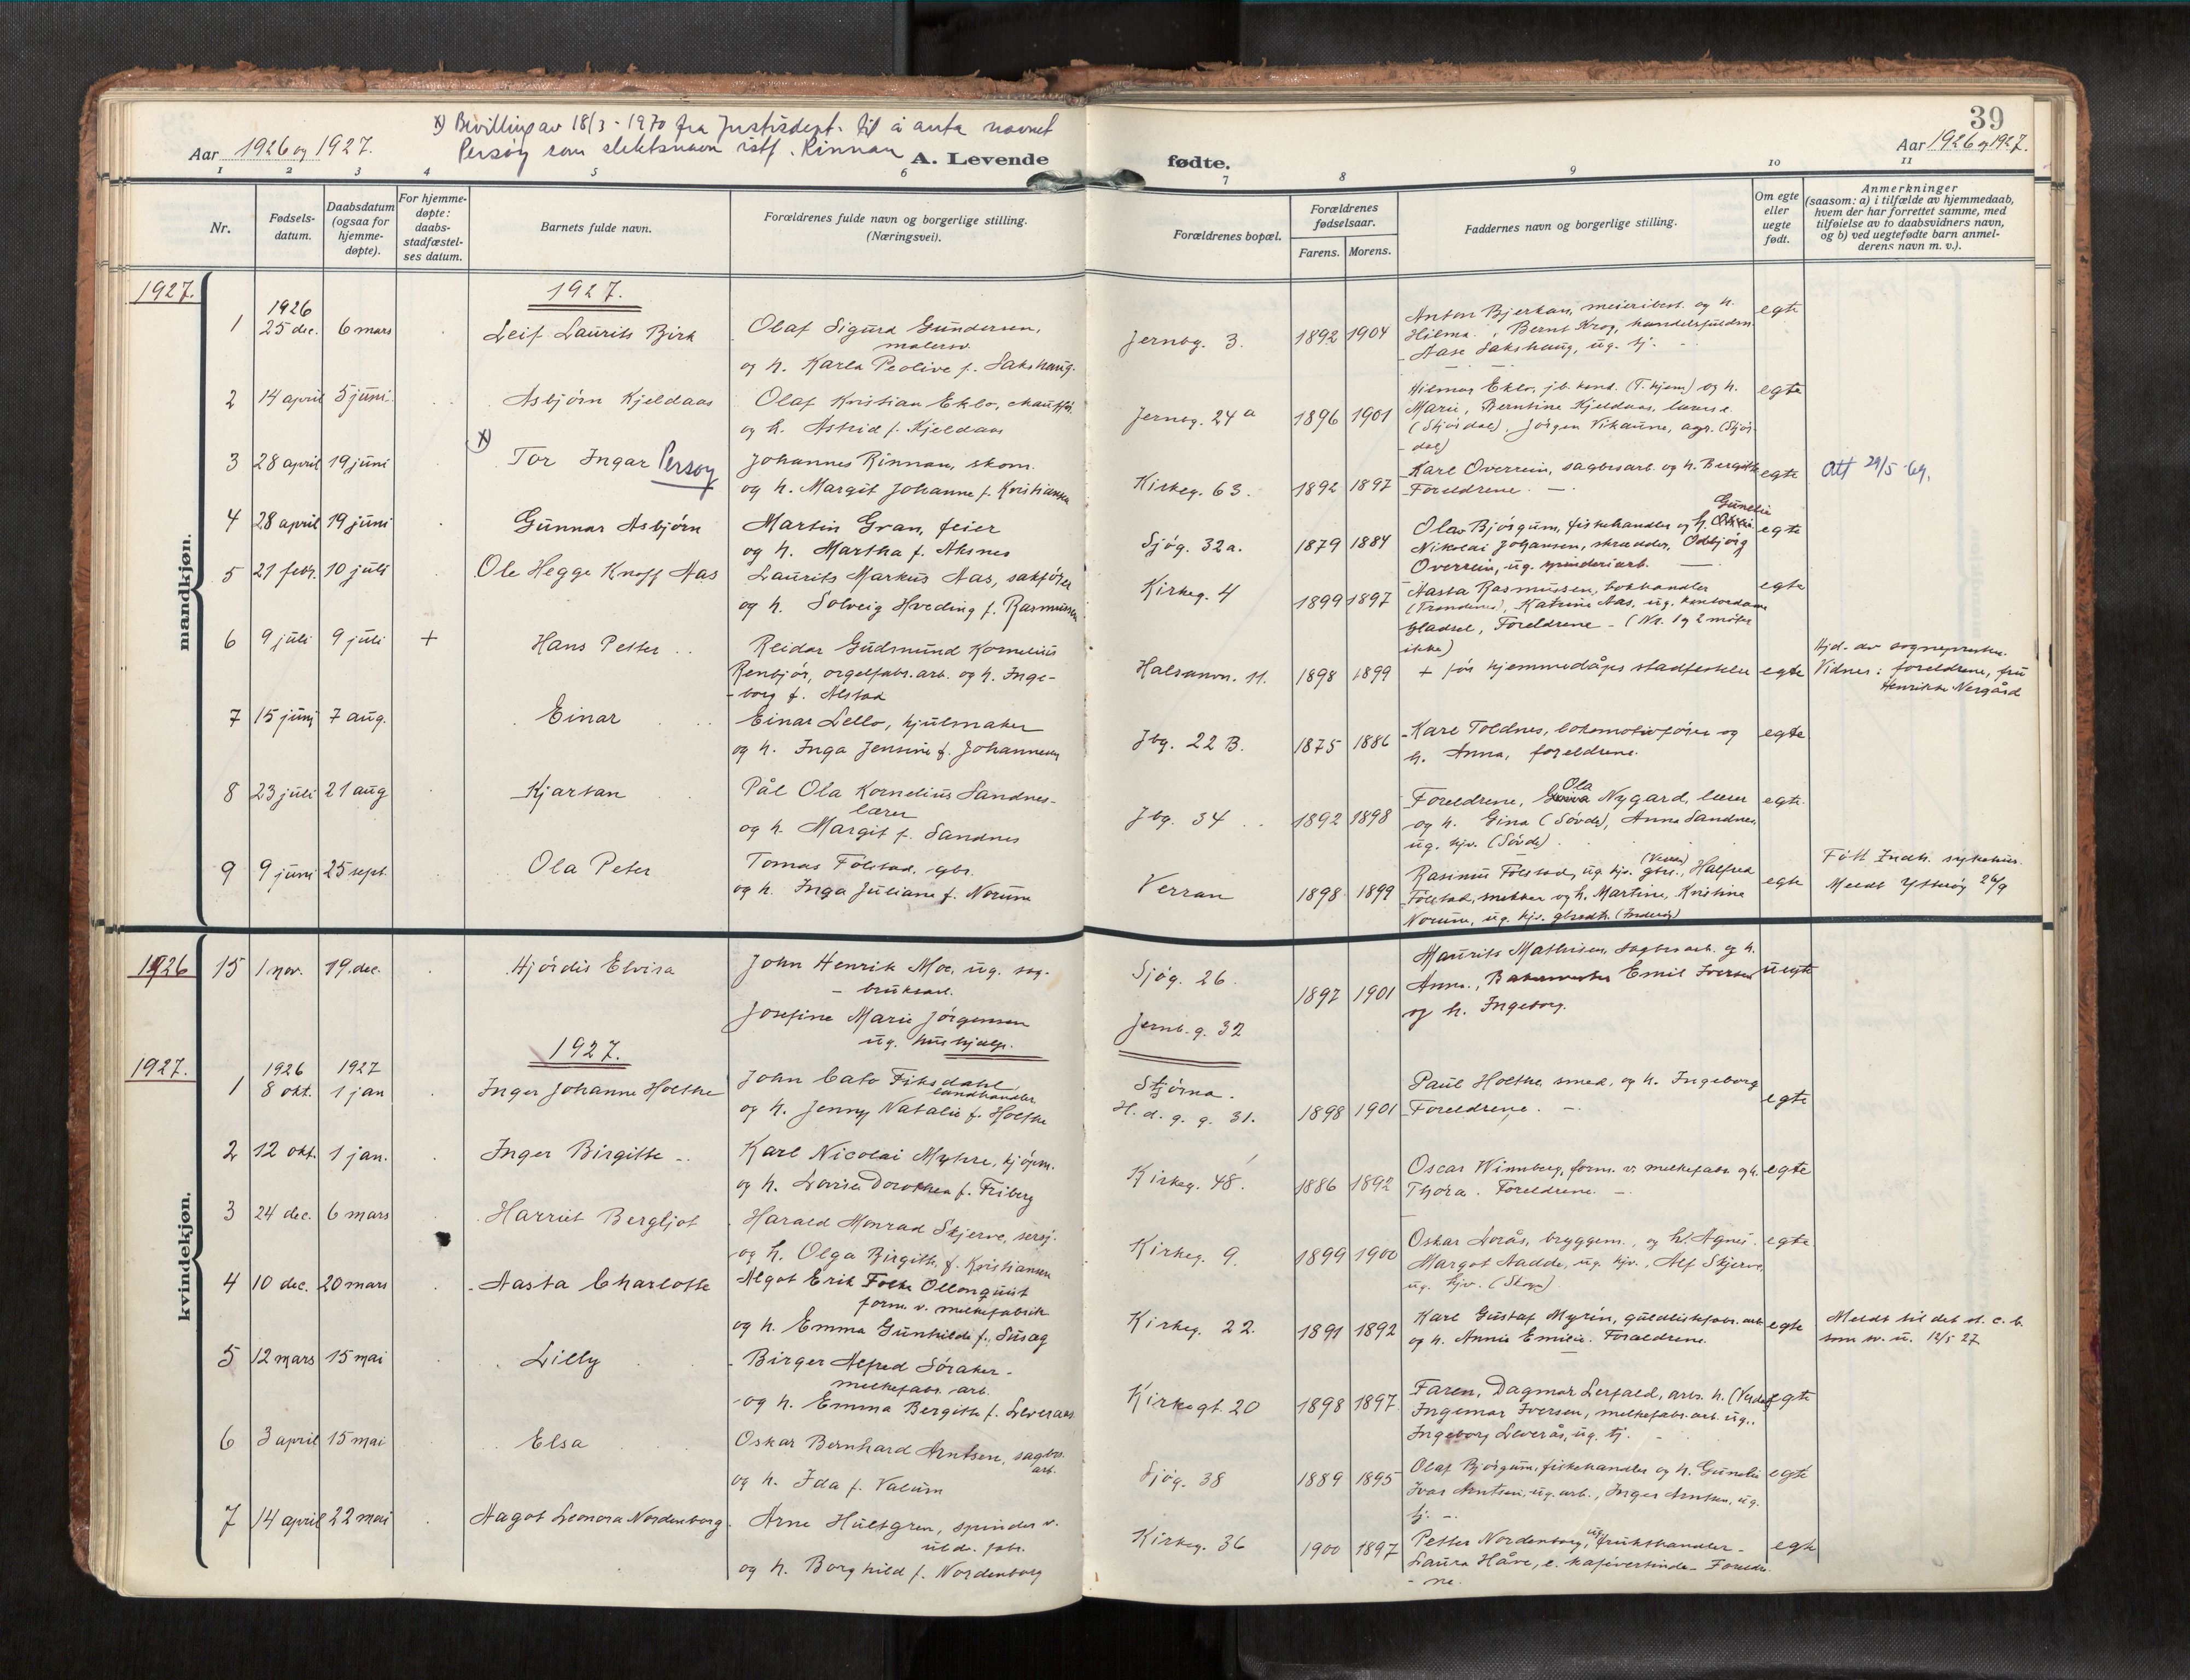 39
Aar 1926 og 1927.
x) Bevilling av 18/3 - 1970 fra Justisdept. til å anta navnet
Persøy som slektsnavn istf. Rinnan
A. Levende fødte.
Aar 1926 og 1927.
1 2 3 4 5 6 7 8 9 10 11
Nr.
Fødsels-
datum.
Daabsdatum
(ogsaa for
hjemme-
døpte).
For hjemme-
døpte:
daabs-
stadfæstel-
ses datum.
Barnets fulde navn.
Forældrenes fulde navn og borgerlige stilling.
(Næringsvei).
Forældrenes bopæl.
Forældrenes
fødselsaar.
Farens. Morens.
Faddernes navn og borgerlige stilling.
Om egte
eller
uegte
født.
Anmerkninger
(saasom: a) i tilfælde av hjemmedaab,
hvem der har forrettet samme, med
tilføielse av to daabsvidners navn,
og b) ved uegtefødte barn anmel-
derens navn m. v.).
mandkjøn.
1927. 1927.
1 1926 25 dec. 6 mars Leif Laurits Birk
Olaf Sigurd Gundersen,
malersv.
og h. Karla Peolive f. Sakshaug.
Jernbg. 3. 1892 1904
Anton Bjerkan, meieribest. og h.
Hilma., Bernt Krog, handelsfuldm.
Aase Sakshaug, ug. tj.
egte
2 14 april 5 juni Asbjørn Kjeldaas
Olaf Kristian Eklo,
og h. Astrid f. Kjeldaas
Jernbg. 24a 1896 1901
Hilmar Eklo, jb. kond. (T.hjem) og h.
Marie, Berntine Kjeldaas, lærerse
(Stjørdal), Jørgen Vikaune, agr. (Stjør-
dal)
egte
3 28 april 19 juni x) Tor Ingar Persøy
Johannes Rinnan, skom.
og h. Margit Johanne f. Kristiansen
Kirkeg. 63. 1892 1897
Karl Overrein, sagbrsarb. og h. Bergitte
Foreldrene.
egte
Att 29/5-64.
4 28 april 19 juni Gunnar Asbjørn
Martin Gran, feier
og h. Martha f. Aksnes
Sjøg. 32a. 1879 1884
Gunelie
Olav Bjørgum, fiskehandler og h.
Nikolai Johansen, skrædder, Odbjørg
Overrein, ug. spinderiarb.
egte
5 21 febr. 10 juli Ole Hegge Knoff Aas
Laurits Markus Aas, sakfører
og h. Solveig Hveding f. Rasmussen
Kirkeg. 4 1899 1897
Aasta Rasmussen, bokhandler
(Trondenes), Katrine Aas, ug. kontordame
Gladsel, Foreldrene - (Nr. 1 og 2 møtte
ikke)
egte
6 9 juli 9 juli + Hans Petter
Reidar Gudsmund Kornelius
Renbjør, orgelfabr.arb. og h. Inge-
borg f. Alstad
Halsanvn. 11. 1898 1899
+ før hjemmedåps stadfestelse
egte
Hjd. av sognepresten.
Vidner: foreldrene, fru
Henrikke Nergård
7 15 juni 7 aug. Einar
Einar Lello, hjulmaker
og h. Inga Jensine f. Johannesen
Jbg. 22 B. 1875 1886
Karl Toldnes, lokomotivfører og
h. Anna, foreldrene.
egte
8 23 juli 21 aug Kjartan
Pål Ola Kornelius Sandnes
lærer
og h. Margit f. Sandnes
Jbg. 34 1892 1898
Ola
Foreldrene, Nygard, lærer
og h. Gina (Søvde), Anna Sandnes,
ug. hjv. (Søvde)
egte
9 9 juni 25 sept Ola Peter
Tomas Følstad, gbr.
og h. Inga Juliane f. Norum
Verran 1898 1899
Rasinus Følstad, ug. hjv. gbrs. (Verran), Halfred
Følstad, snekker og h. Martine, Kristine
Norum, ug. hjv. gbrsdtr. (Inderøy)
egte
Født Indh. sykehus.
Meldt Ytterøy 26/9
kvindekjøn.
1926 15 1 nov. 19. dec. Hjørdis Elvira
John Henrik Moe, ug. sag-
bruksarb.
Josefine Marie Jørgensen
ug. hushjelp.
Sjøg. 26.
Jernb.g. 32
1897 1901
Maurits Mathisen, sagbrsarb. og h.
Anna., Bakermester Emil Iversen
og h. Ingeborg.
uegte
1927. 1927.
1926 1927
1 8 okt. 1 jan Inger Johanne Holthe
John Cato Fiksdahl,
landhandler
og h. Jenny Natalie f. Holthe
Stjørna.
H. d. g. g. 31. 1898 1901
Paul Holthe, smed, og h. Ingeborg
Foreldrene.
egte
2 12 okt. 1 jan. Inger Birgitte
Karl Nicolai Myhre, kjøpm.
og h. Lovise Dorothea f. Friberg
Kirkeg. 48. 1886 1892
Oscar Winnberg, form. v. melkefabr. og h.
Thora. Foreldrene.
egte
3 24 dec. 6 mars Harriet Bergljot
Harald Monrad Skjerve, sersj.
og h. Olga Birgitte f. Kristiansen
Kirkeg. 9. 1899 1900
Oskar Norås, bryggem., og h. Agnes.
Margot Aadde, ug. hjv., Alf Skjerve,
ug. hjv. (Skogn)
egte
4 10 dec. 20 mars Aasta Charlotte
Algot Erik Folke Ollonquist
form. v. melkefabrik
og h. Emma Gunhilde f. Susag
Kirkeg. 22. 1891 1892
Karl Gustaf Myrin, guldlistfabr. arb
og h. Annie Emilie. Foreldrene.
egte
Meldt til det st. c. b.
som sv. u. 12/5 27
5 12 mars 15 mai Lilly
Birger Alfred Søraker
melkefabr. arb.
og h. Emma Bergitte f. Leveraas
Kirkegt. 20 1898 1897
Faren, Dagmar Lerfald, arbs. h. (Verdal)
Ingemar Iversen, melkefabr.arb. ug.,
Ingeborg Leverås, ug. tj.
egte
6 3 april 15 mai Elsa
Oskar Bernhard Arntsen, sagbrs.
arb.
og h. Ida f. Valum
Sjøg. 38 1889 1895
Olaf Bjørgum, fiskehandler og h. Gunelie
Ivar Arntsen, ug. arb., Inger Arntsen, ug.
tj.
egte
7 14 april 22 mai Aagot Leonora Nordenborg
Arne Hultgren, spinder v.
uld. fabr.
og h. Borghild f. Nordenborg
Kirkeg. 36 1900 1897
Petter Nordenborg, ug. frukthandler
Laura Håve, e. kafévertinde- Foreldre-
ne.
egte